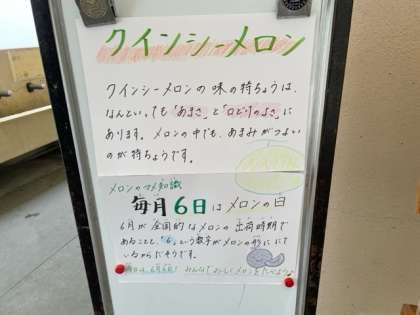 クインシーメロン
クインシーメロンの味の特ちょうは、
なんといっても「あまさ」と「口どけのよさ」に
あります。メロンの中でも、あまみがつよい
のが特ちょうです。
メロンのマメ知識
毎月6日はメロンの日
6月が全国的なメロンの出荷時期で
あることと、「6」という数字がメロンの形ににて
いるからだそうです。
は6月6日！みんなでおいしくメロンをたべよう